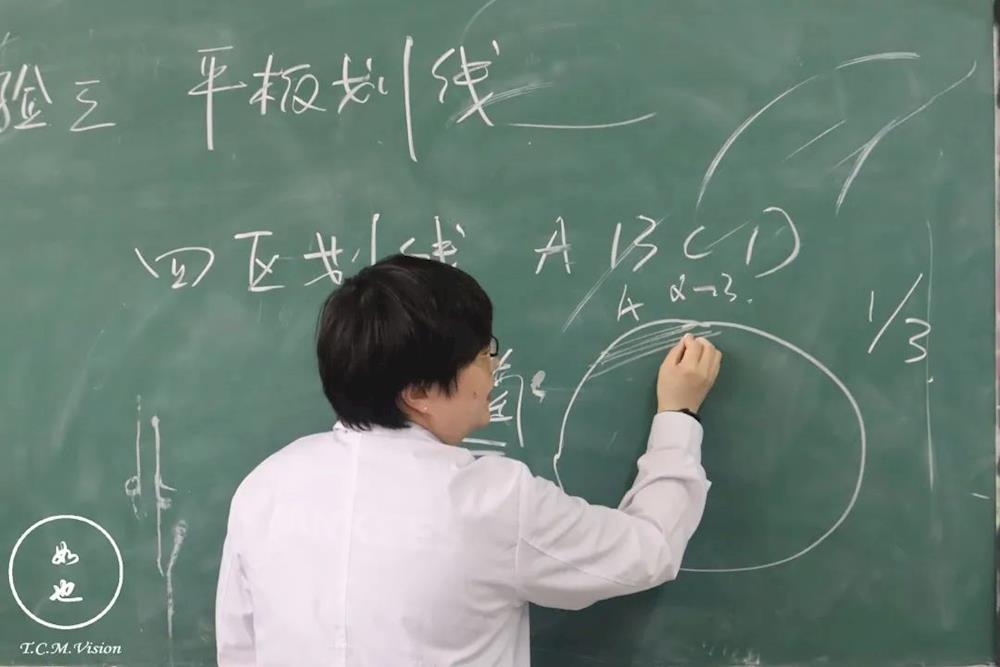 验三 平板划线
四区划线 A B C D
A 2-3.
1/3
如
也
T.C.M.Vision